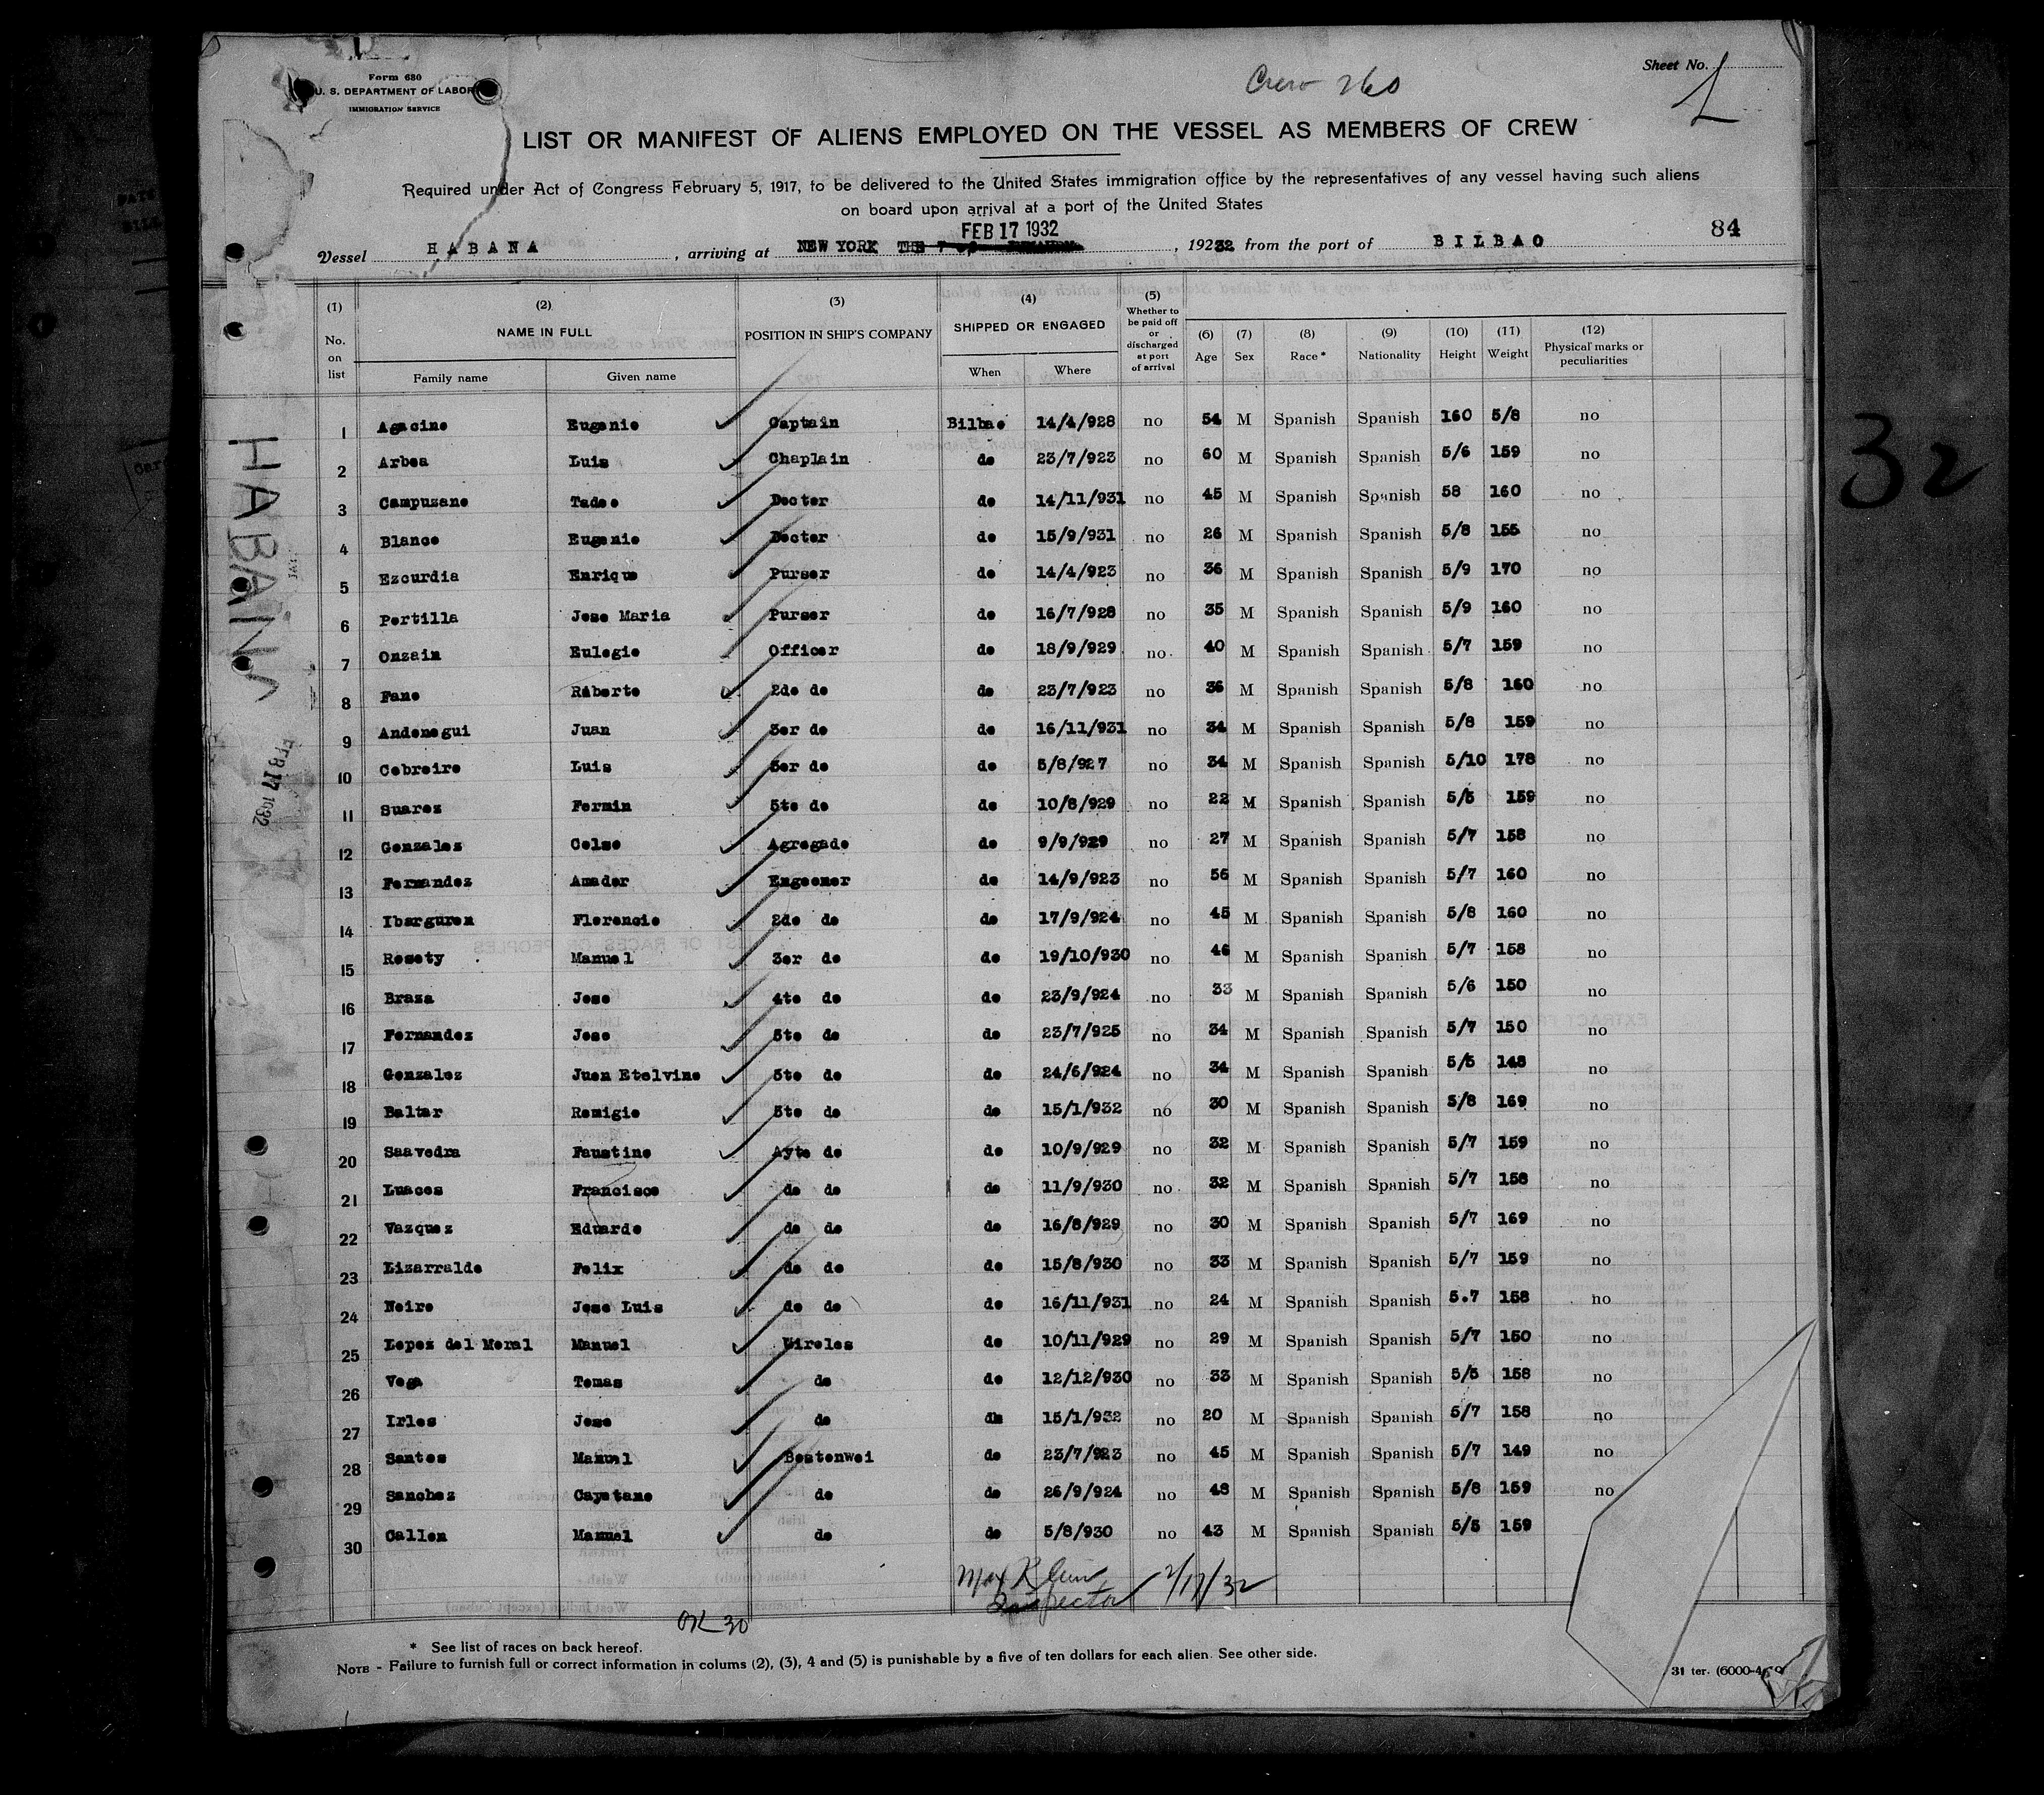 Form 680
U. S. DEPARTMENT OF LABOR
IMMIGRATION SERVICE
Crew 260
Sheet No. 1
LIST OR MANIFEST OF ALIENS EMPLOYED ON THE VESSEL AS MEMBERS OF CREW
Required under Act of Congress February 5, 1917, to be delivered to the United States immigration office by the representatives of any vessel having such aliens
on board upon arrival at a port of the United States
FEB 17 1932
84
Vessel HABANA, arriving at NEW YORK, 19232 from the port of BILBAO
(1) No. on list (2) NAME IN FULL Family name Given name (3) POSITION IN SHIP'S COMPANY (4) SHIPPED OR ENGAGED When Where (5) Whether to be paid off or discharged at port of arrival (6) Age (7) Sex (8) Race * (9) Nationality (10) Height (11) Weight (12) Physical marks or peculiarities
1 Agacino Eugenio Captain Bilbao 14/4/928 no 54 M Spanish Spanish 160 5/8 no
2 Arbea Luis Chaplain do 23/7/923 no 60 M Spanish Spanish 5/6 159 no
3 Campuzano Tadeo Doctor do 14/11/931 no 45 M Spanish Spanish 58 160 no
4 Blanco Eugenio Doctor do 15/9/931 no 26 M Spanish Spanish 5/8 155 no
5 Ezcurdia Enrique Purser do 14/4/923 no 36 M Spanish Spanish 5/9 170 no
6 Portilla Jose Maria Purser do 16/7/928 no 35 M Spanish Spanish 5/9 160 no
7 Onzain Eulogio Officer do 18/9/929 no 40 M Spanish Spanish 5/7 159 no
8 Fano Roberto 2do do do 23/7/923 no 36 M Spanish Spanish 5/8 160 no
9 Andonegui Juan 3er do do 16/11/931 no 34 M Spanish Spanish 5/8 159 no
10 Cobreiro Luis 3er do do 5/8/927 no 34 M Spanish Spanish 5/10 178 no
11 Suarez Fermin 5to do do 10/8/929 no 22 M Spanish Spanish 5/5 159 no
12 Gonzalez Celso Agregado do 9/9/929 no 27 M Spanish Spanish 5/7 158 no
13 Fernandez Amador Engeener do 14/9/923 no 56 M Spanish Spanish 5/7 160 no
14 Ibarguren Florencio 2do do do 17/9/924 no 45 M Spanish Spanish 5/8 160 no
15 Rosety Manuel 3er do do 19/10/930 no 46 M Spanish Spanish 5/7 158 no
16 Braza Jose 4to do do 23/9/924 no 33 M Spanish Spanish 5/6 150 no
17 Fernandez Jose 5to do do 23/7/925 no 34 M Spanish Spanish 5/7 150 no
18 Gonzalez Juan Etelvino 5to do do 24/6/924 no 34 M Spanish Spanish 5/5 148 no
19 Baltar Remigio 5to do do 15/1/932 no 30 M Spanish Spanish 5/8 169 no
20 Saavedra Faustino Ayte do do 10/9/929 no 32 M Spanish Spanish 5/7 159 no
21 Luaces Francisco do do do 11/9/930 no 32 M Spanish Spanish 5/7 158 no
22 Vazquez Eduardo do do do 16/8/929 no 30 M Spanish Spanish 5/7 169 no
23 Lizarralde Felix do do do 15/8/930 no 33 M Spanish Spanish 5/7 159 no
24 Neiro Jose Luis do do do 16/11/931 no 24 M Spanish Spanish 5.7 158 no
25 Lopez del Moral Manuel Wireles do 10/11/929 no 29 M Spanish Spanish 5/7 150 no
26 Vega Tomas do do 12/12/930 no 33 M Spanish Spanish 5/5 158 no
27 Irles Jose do do 15/1/932 no 20 M Spanish Spanish 5/7 158 no
28 Santos Manuel Bostonwei do 23/7/923 no 45 M Spanish Spanish 5/7 149 no
29 Sanchez Cayetano do do 26/9/924 no 48 M Spanish Spanish 5/8 159 no
30 Callon Manuel do do 5/8/930 no 43 M Spanish Spanish 5/5 159
Max Klein 2/17/32
Inspector
OK 30
* See list of races on back hereof.
NOTE - Failure to furnish full or correct information in colums (2), (3), 4 and (5) is punishable by a five of ten dollars for each alien. See other side.
31 ter. (6000-4
HABANA
FEB 17 1932
32